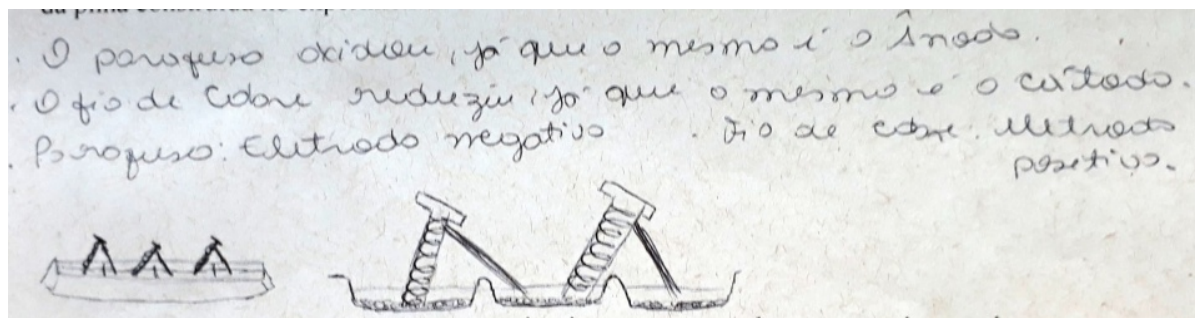 . O parafuso oxidou, já que o mesmo é o Ânodo.
. O fio de cobre reduziu, já que o mesmo é o cátodo.
. Parafuso: Eletrodo negativo . Fio de cobre. Eletrodo
posetivo.